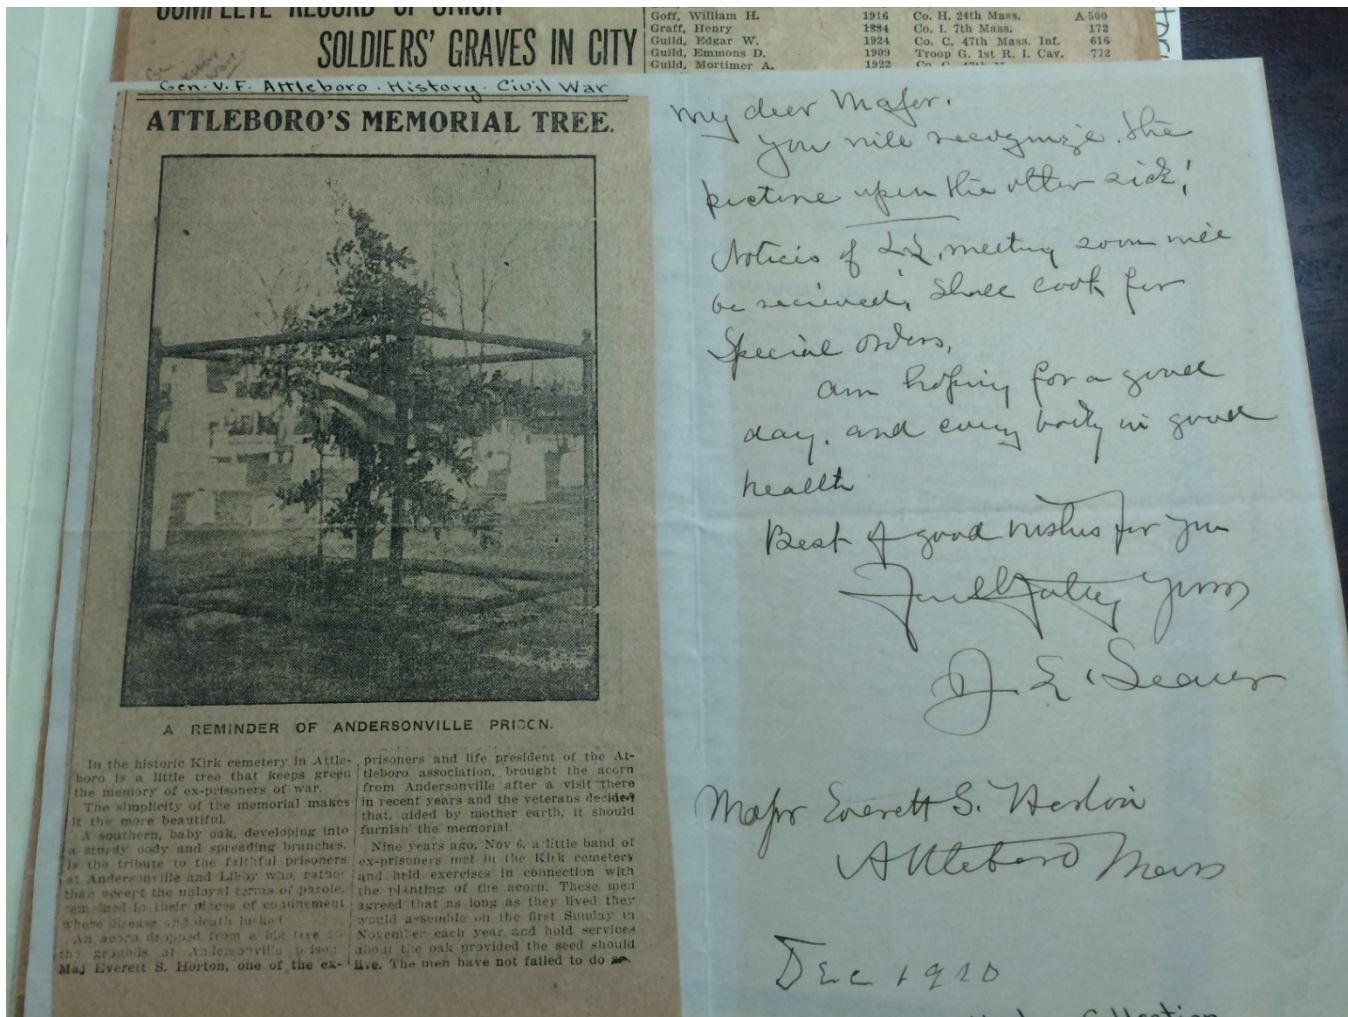 COMPLETE RECORD OF UNION
SOLDIERS' GRAVES IN CITY
Goff, William H. 1916 Co. H. 24th Mass. A 500
Graff, Henry 1884 Co. I. 7th Mass. 172
Guild, Edgar W. 1924 Co. C. 47th Mass. Inf. 616
Guild, Emmons D. 1909 Troop G. 1st R. I. Cav. 772
Guild, Mortimer A. 1922
Gen. V. F. Attleboro. History. Civil War
ATTLEBORO'S MEMORIAL TREE.
A REMINDER OF ANDERSONVILLE PRISON.
In the historic Kirk cemetery in Attle-
boro is a little tree that keeps green
the memory of ex-prisoners of war.
The simplicity of the memorial makes
it the more beautiful.
A southern, baby oak, developing into
a sturdy body and spreading branches,
is the tribute to the faithful prisoners
at Andersonville and Libby who, rather
than accept the unloyal terms of parole,
remained in their places of confinement
where disease and death lurked
An acorn dropped from a big tree in
the grounds at Andersonville prison
Maj Everett S. Horton, one of the ex-
prisoners and life president of the At-
tleboro association, brought the acorn
from Andersonville after a visit there
in recent years and the veterans decided
that, aided by mother earth, it should
furnish the memorial.
Nine years ago, Nov 6, a little band of
ex-prisoners met in the Kirk cemetery
and held exercises in connection with
the planting of the acorn. These men
agreed that as long as they lived they
would assemble on the first Sunday in
November each year and hold services
about the oak provided the seed should
live. The men have not failed to do so.
My dear Major.
You will recognize the
picture upon the other side!
Notices of meeting soon will
be recieved, Shall look for
Special orders,
am hoping for a good
day, and every body in good
health
Best of good wishes for you
Faithfully Yours
J. E. Seaver
Major Everett S. Horton
Attleboro Mass
Dec 1910
Collection